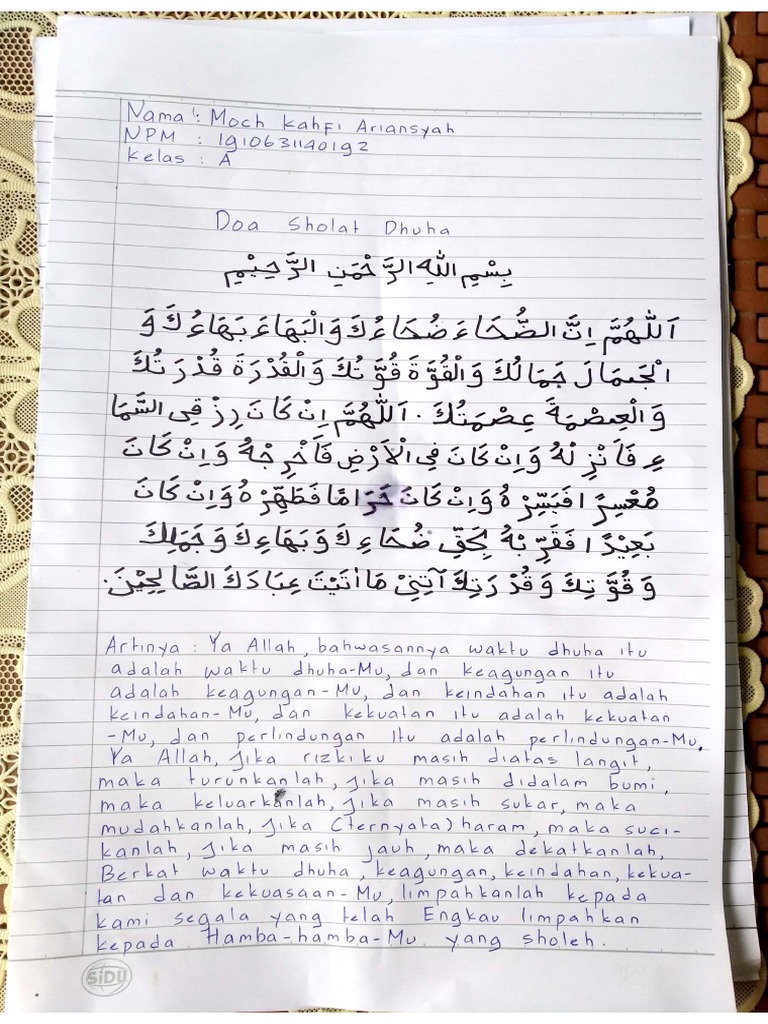 Nama : Moch Kahfi Ariansyah
NPM : 1910631140192
Kelas : A
Doa Sholat Dhuha
بِسْمِ اللهِ الرَّحْمَنِ الرَّحِيْمِ
اَللّٰهُمَّ اِنَّ الضُّحَاءَ ضُحَاءُكَ وَالْبَهَاءَ بَهَاءُكَ وَ
الْجَمَالَ جَمَالُكَ وَالْقُوَّةَ قُوَّتُكَ وَالْقُدْرَةَ قُدْرَتُكَ
وَالْعِصْمَةَ عِصْمَتُكَ . اَللّٰهُمَّ اِنْ كَانَ رِزْقِى السَّمَا
ءِ فَاَنْزِلْهُ وَاِنْ كَانَ فِى الْاَرْضِ فَاَخْرِجْهُ وَاِنْ كَانَ
مُعْسِرًا فَيَسِّرْهُ وَاِنْ كَانَ حَرَامًا فَطَهِّرْهُ وَاِنْ كَانَ
بَعِيْدًا فَقَرِّبْهُ بِحَقِّ ضُحَاءِكَ وَبَهَاءِكَ وَجَمَلِكَ
وَقُوَّتِكَ وَقُدْرَتِكَ آتِنِىْ مَااٰتَيْتَ عِبَادَكَ الصَّالِحِيْنَ.
Artinya : Ya Allah, bahwasannya waktu dhuha itu
adalah waktu dhuha-Mu, dan keagungan itu
adalah keagungan-Mu, dan keindahan itu adalah
keindahan-Mu, dan kekuatan itu adalah kekuatan
-Mu, dan perlindungan itu adalah perlindungan-Mu.
Ya Allah, jika rizkiku masih diatas langit,
maka turunkanlah, jika masih didalam bumi,
maka keluarkanlah, jika masih sukar, maka
mudahkanlah, jika (ternyata) haram, maka suci-
kanlah, jika masih jauh, maka dekatkanlah,
Berkat waktu dhuha, keagungan, keindahan, kekua-
tan dan kekuasaan-Mu, limpahkanlah kepada
kami segala yang telah Engkau limpahkan
kepada Hamba-hamba-Mu yang sholeh.
SiDU